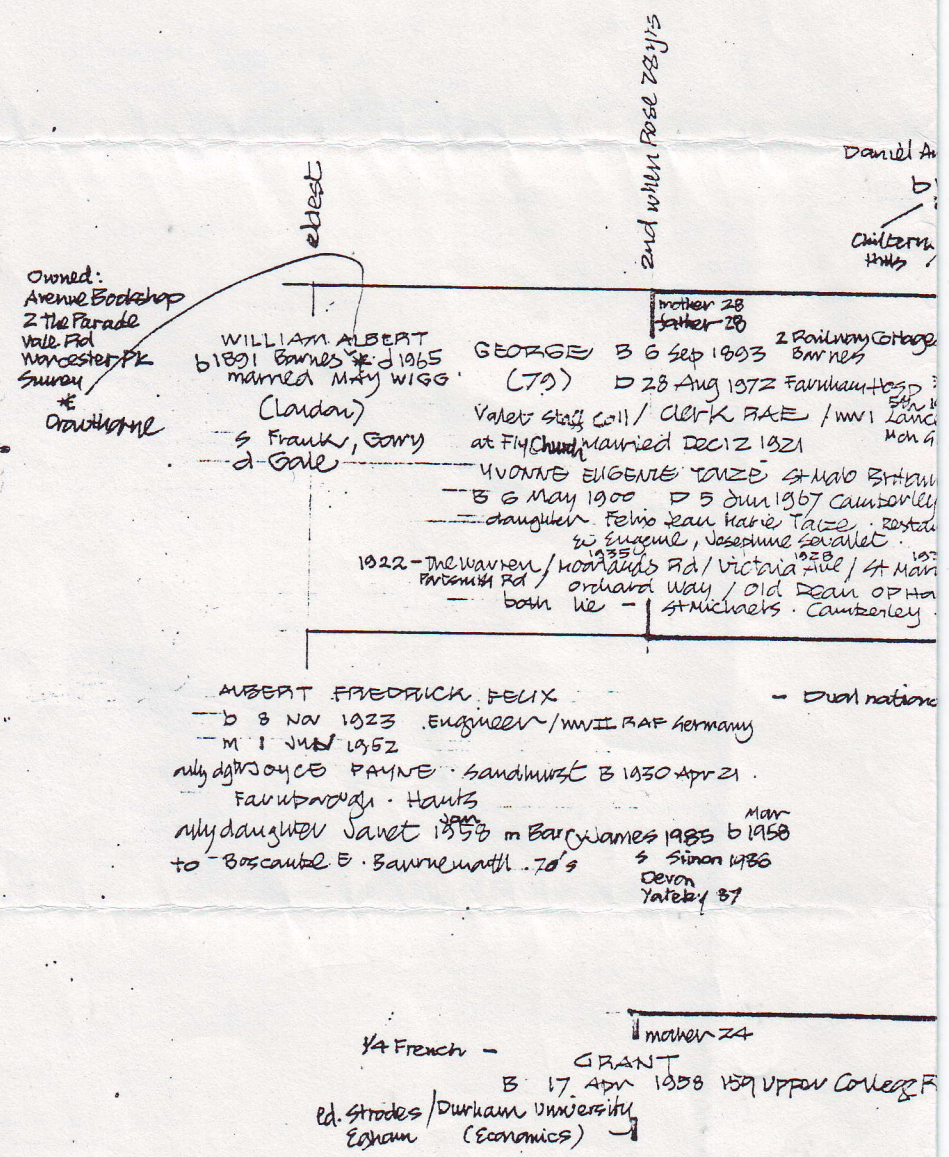 eldest
2nd when Rose 28yrs
Daniel A
b
Chiltern
Hills
Owned:
Avenue Bookshop
2 The Parade
Vale Rd
Worcester Pk
Surrey
*
Crowthorne
WILLIAM ALBERT
b 1891 Barnes * d 1965
married MAY WIGG
(London)
s Frank, Gary
d Gale
mother 28
father 28
GEORGE B 6 Sep 1893 2 Railway Cottage
Barnes
(79) D 28 Aug 1972 Farnham Hosp
Valet Staff Coll / Clerk RAE / WW1 5th Lanc
at Fly Church Married DEC 12 1921 Mon G
YVONNE EUGENIE TAIZE St Malo Brittan
B 6 May 1900 D 5 Jun 1967 Camberley
daughter Felix Jean Marie Taize . Resta
Eugenie, Josephine
1922 - The Warren / 1935 Moorlands Rd / Victoria Ave 1928 / St Mar
Portsmith Rd / Orchard Way / Old Dean OP Ho
both lie - St Michaels . Camberley
ALBERT FREDRICK FELIX - Dual nation
b 8 Nov 1923 . Engineer / WWII RAF Germany
m 1 JUN 1952
only dgtr JOYCE PAYNE . Sandhurst B 1930 Apr 21 .
Farnborough . Hants
only daughter Janet Jan 1958 m Barry James 1985 b Mar 1958
to Boscombe E . Bournemouth . 70's s Simon 1986
Devon
Yateley 87
mother 24
1/4 French -
GRANT
B 17 Apr 1958 159 Upper College R
ed. Strodes / Durham University
Egham (Economics)